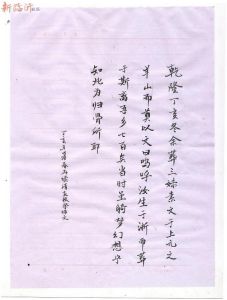 乾隆丁亥冬余葬三妹素文于上元之
羊山而奠以文曰呜呼汝生于浙而葬
于斯离吾乡七百矣当时虽觭梦幻想宁
知此为归骨所耶
清袁枚祭妹文